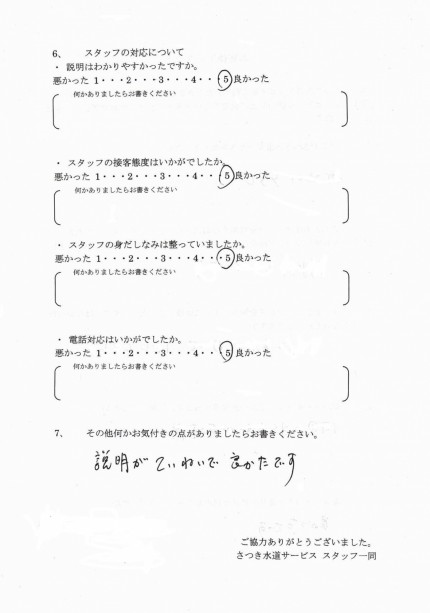 6、 スタッフの対応について
・ 説明はわかりやすかったですか。
悪かった 1・・・2・・・3・・・4・・・5 良かった
何かありましたらお書きください
・ スタッフの接客態度はいかがでしたか。
悪かった 1・・・2・・・3・・・4・・・5 良かった
何かありましたらお書きください
・ スタッフの身だしなみは整っていましたか。
悪かった 1・・・2・・・3・・・4・・・5 良かった
何かありましたらお書きください
・ 電話対応はいかがでしたか。
悪かった 1・・・2・・・3・・・4・・・5 良かった
何かありましたらお書きください
7、 その他何かお気付きの点がありましたらお書きください。
説明がていねいで 良かたです
ご協力ありがとうございました。
さつき水道サービス スタッフ一同